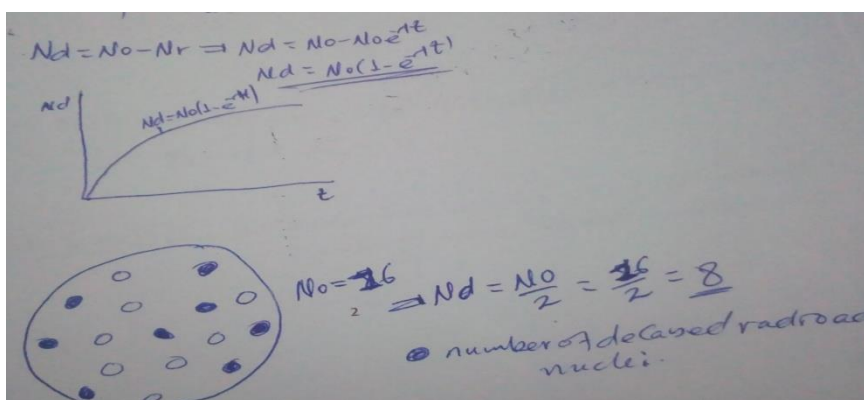 Nd = No - Nr ⇒ Nd = No - Noe^-λt
Nd = No(1 - e^-λt)
Nd
Nd = No(1 - e^-λt)
t
No = 16
2
⇒ Nd = No/2 = 16/2 = 8
number of decayed radroac
nuclei.